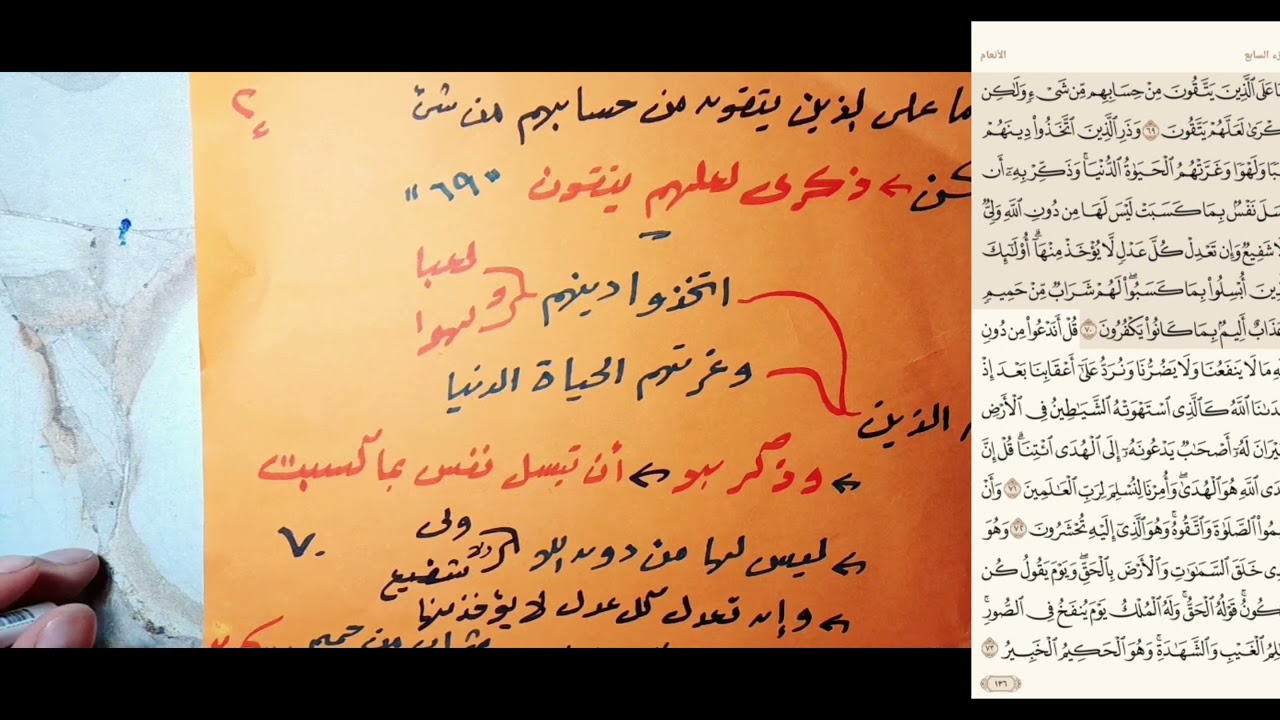 ما على الذين يتقون من حسابهم من شئ
ء٢
كن ذكرى لعلهم يتقون "٦٩"
لعبا
اتخذوا دينهم
و لهوا
وغرتهم الحياة الدنيا
الذين
وذكر به أن تبسل نفس بما كسبت
ولى
ليس لها من دون الله
ولا شفيع
٧٠
وإن تعدل كل عدل لا يؤخذ منها
من حميم
الأنعام
زء السابع
ا عَلَى ٱلَّذِينَ يَتَّقُونَ مِنْ حِسَابِهِم مِّن شَىْءٍ وَلَٰكِن
كْرَىٰ لَعَلَّهُمْ يَتَّقُونَ ٦٩ وَذَرِ ٱلَّذِينَ ٱتَّخَذُوا۟ دِينَهُمْ
بًا وَلَهْوًا وَغَرَّتْهُمُ ٱلْحَيَوٰةُ ٱلدُّنْيَا ۚ وَذَكِّرْ بِهِۦٓ أَن
سَلَ نَفْسٌۢ بِمَا كَسَبَتْ لَيْسَ لَهَا مِن دُونِ ٱللَّهِ وَلِىٌّ
ا شَفِيعٌ وَإِن تَعْدِلْ كُلَّ عَدْلٍ لَّا يُؤْخَذْ مِنْهَآ ۗ أُو۟لَٰٓئِكَ
ذِينَ أُبْسِلُوا۟ بِمَا كَسَبُوا۟ ۖ لَهُمْ شَرَابٌ مِّنْ حَمِيمٍ
عَذَابٌ أَلِيمٌۢ بِمَا كَانُوا۟ يَكْفُرُونَ ٧٠ قُلْ أَنَدْعُوا۟ مِن دُونِ
هِ مَا لَا يَنفَعُنَا وَلَا يَضُرُّنَا وَنُرَدُّ عَلَىٰٓ أَعْقَابِنَا بَعْدَ إِذْ
دَىٰنَا ٱللَّهُ كَٱلَّذِى ٱسْتَهْوَتْهُ ٱلشَّيَٰطِينُ فِى ٱلْأَرْضِ
يْرَانَ لَهُۥٓ أَصْحَٰبٌ يَدْعُونَهُۥٓ إِلَى ٱلْهُدَى ٱئْتِنَا ۗ قُلْ إِنَّ
دَى ٱللَّهِ هُوَ ٱلْهُدَىٰ ۖ وَأُمِرْنَا لِنُسْلِمَ لِرَبِّ ٱلْعَٰلَمِينَ ٧١ وَأَنْ
يمُوا۟ ٱلصَّلَوٰةَ وَٱتَّقُوهُ ۚ وَهُوَ ٱلَّذِىٓ إِلَيْهِ تُحْشَرُونَ ٧٢ وَهُوَ
ذِى خَلَقَ ٱلسَّمَٰوَٰتِ وَٱلْأَرْضَ بِٱلْحَقِّ ۖ وَيَوْمَ يَقُولُ كُن
كُونُ ۚ قَوْلُهُ ٱلْحَقُّ ۚ وَلَهُ ٱلْمُلْكُ يَوْمَ يُنفَخُ فِى ٱلصُّورِ ۚ
لِمُ ٱلْغَيْبِ وَٱلشَّهَٰدَةِ ۚ وَهُوَ ٱلْحَكِيمُ ٱلْخَبِيرُ ٧٣
١٣٦